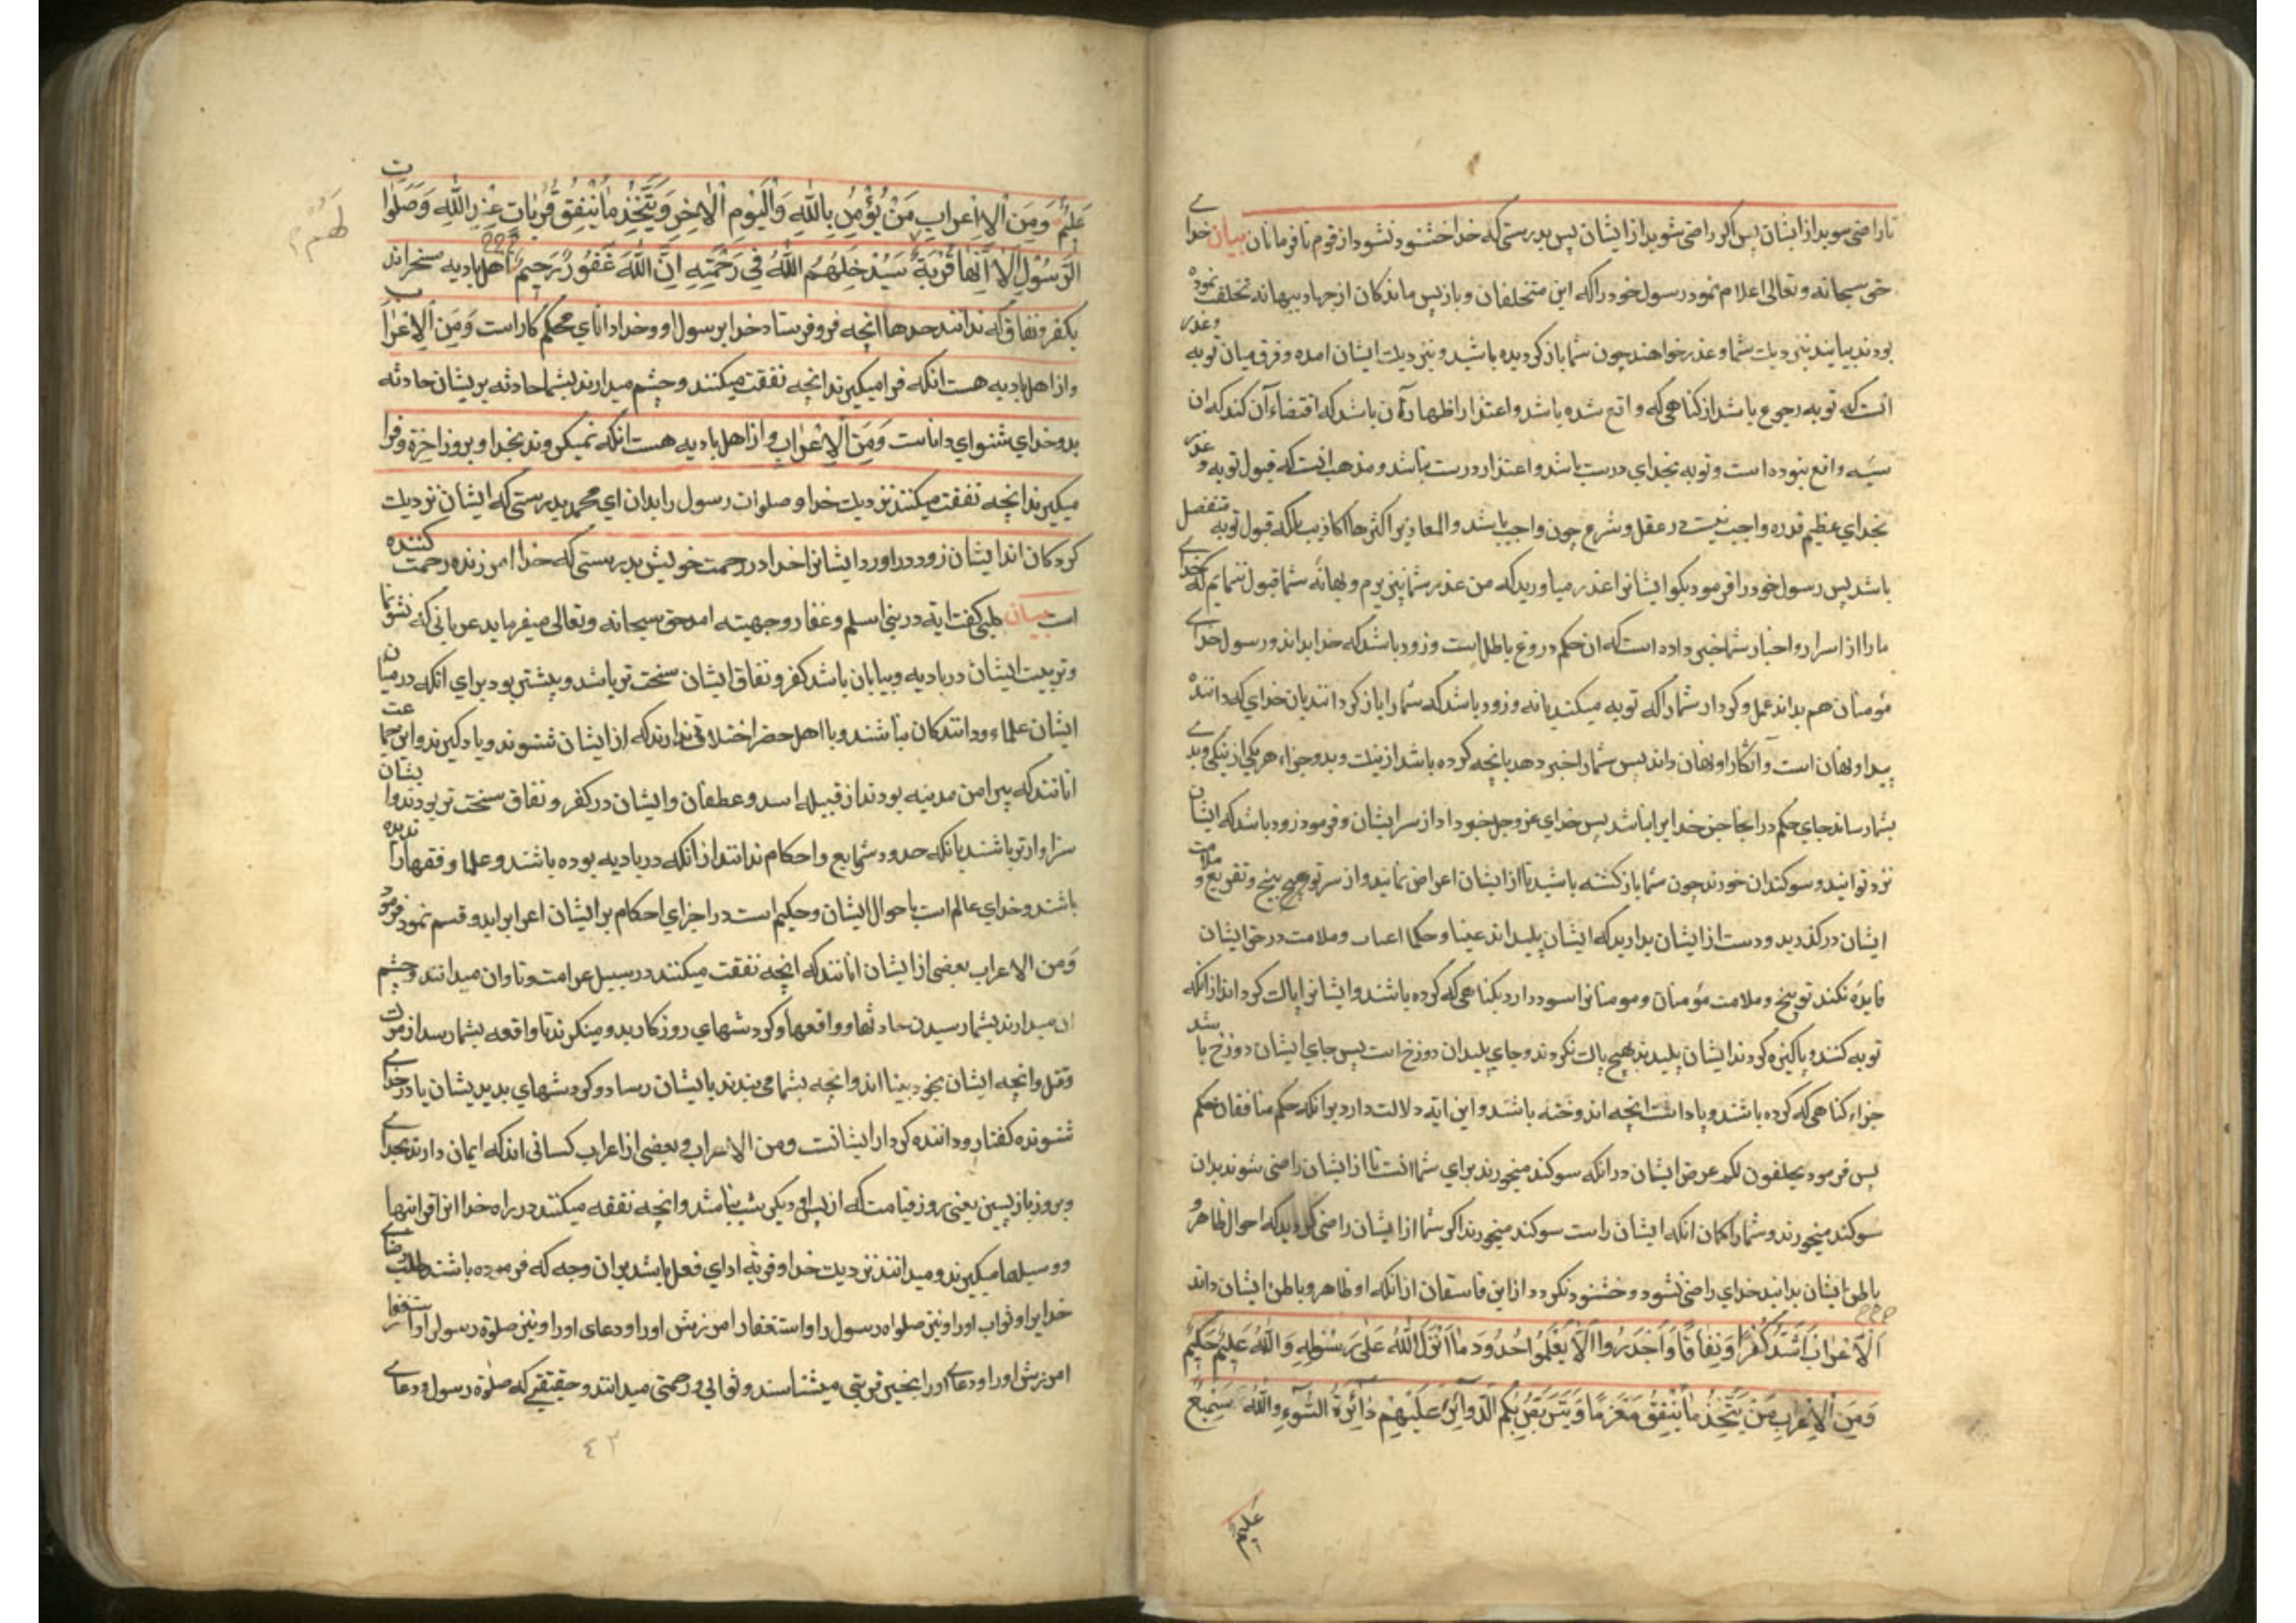 تا راضی شوید از ایشان پس اگر راضی شوید از ایشان پس بدرستی که خدا خشنود نشود از قوم نافرمانان بیان خدای
حق سبحانه و تعالی اعلام نمود رسول خود را که این متخلفان و باز پس ماندکان از جهاد ببهانه تخلف نموده
بودند بیایند بنزدیك شما و عذر خواهند چون شما باز کردیده باشید و بنزدیك ایشان امده و فرق میان توبه و عذر
انست که توبه رجوع باشد از کناهی که واقع شده باشد و اعتذار اظهار آن باشد که اقتضاء آن کند که ان
سیه واقع نبوده است و توبه بخدای درست باشد و اعتذار درست نباشد و مذهب انست که قبول توبه و عذر
بخدای عظیم قدره واجب نیست در عقل و شرع چون واجب باشد والمعاذیر اکثرها اکاذیب بلکه قبول توبه متفضل
باشد پس رسول خود را فرمود بکو ایشانرا عذر میاورید که من عذر شما نپذیرم و بهانه شما قبول ننمایم که خدای
ما را از اسرار و اخبار شما خبر داده است که ان حکم دروغ باطل است و زود باشد که خدا بداند و رسول خدای
مؤمنان هم بداند عمل و کردار شما را که توبه میکنید یا نه و زود باشد که شما را باز کردانند بان خدای که داننده
پیدا و نهان است و آشکارا و نهان داند پس شما را خبر دهد بانچه کرده باشد از نیك و بد و جزاء هر یکی از نیکی و بدی
بشما رساند جای حکم در انجا جز خدایرا نباشد پس خدای عز و جل خبر داد از سر ایشان و فرمود زود باشد که ایشان
نزد تو ایند و سوکندان خورند چون شما باز کشته باشید تا از ایشان اعراض نمایید و از سر توبیخ و تقریع و ملامت
ایشان در کذرید و دست از ایشان بدارید که ایشان پلیداند عینا و حکما اعتاب و ملامت در حق ایشان
فایده نکند توبیخ و ملامت مؤمنان و مومنانرا سود دارد بکناهی که کرده باشند و ایشانرا پاك کرداند از انکه
توبه کنند و پاکیزه کردند ایشان پلیدند بهیچ پاك نکردند و جای پلیدان دوزخ است پس جای ایشان دوزخ باشد
جزاء کناهی که کرده باشند و پاداشت انچه اندوخته باشند و این ایه دلالت دارد برانکه حکم منافقان حکم
پس فرمود یحلفون لکم عرض ایشان در انکه سوکند میخورند برای شما انست تا از ایشان راضی شوند بدان
سوکند میخورند و شما را کمان انکه ایشان راست سوکند میخورند اکر شما از ایشان راضی کردید که احوال ظاهر و
باطن ایشان بدانید خدای راضی نشود و خشنود نکردد از این فاسقان از انکه او ظاهر و باطن ایشان داند
اَلْاَعْرابُ اَشَدُّ كُفْرًا وَنِفاقًا وَاَجْدَرُ واالَّا يَعْلَمُوا حُدُودَ ما اَنْزَلَ اللّٰهُ عَلى رَسُولِهِ وَاللّٰهُ عَلِيمٌ حَكِيمٌ
وَمِنَ الْاَعْرابِ مَنْ يَتَّخِذُ ما يُنْفِقُ مَغْرَمًا وَيَتَرَبَّصُ بِكُمُ الدَّوائِرَ عَلَيْهِمْ دائِرَةُ السَّوْءِ وَاللّٰهُ سَمِيعٌ
علیم
عَلِيمٌ وَمِنَ الْاَعْرابِ مَنْ يُؤْمِنُ بِاللّٰهِ وَالْيَوْمِ الْاٰخِرِ وَيَتَّخِذُ ما يُنْفِقُ قُرُباتٍ عِنْدَ اللّٰهِ وَصَلَواتِ
الرَّسُولِ اَلا اِنَّها قُرْبَةٌ سَيُدْخِلُهُمُ اللّٰهُ فِي رَحْمَتِهِ اِنَّ اللّٰهَ غَفُورٌ رَحِيمٌ اهل بادیه سختراند
لَهُمْ
بکفر و نفاق که ندانند حدها انچه فرو فرستاد خدا بر رسول او و خدا دانای محکم کار است وَمِنَ الْاَعْرابِ
و از اهل بادیه هست انکه فرا میکیرند انچه نفقت میکنند و چشم میدارند بشما حادثه بریشان حادثه
بد و خدای شنوای داناست وَمِنَ الْاَعْرابِ و از اهل بادیه هست انکه نمیکروند بخدا و بروز اخرة و فرا
میکیرند انچه نفقت میکنند نزدیك خدا و صلوات رسول را بدان ای محمد بدرستی که ایشان نزدیك
کردکان اند ایشان زود در اورد ایشانرا خدا در رحمت خویش بدرستی که خدا امرزنده رحمت کننده
است بیان کلبی کفت ایه در بنی اسلم و غفار و جهینه امد حق سبحانه و تعالی میفرماید عربانی که نشو نما
و تربیت ایشان در بادیه و بیابان باشد کفر و نفاق ایشان سخت تر باشد و بیشتر بود برای انکه در میان
ایشان علماء و دانندکان نباشند و با اهل حضر اختلاقی ندارند که از ایشان شنوند و یاد کیرند و این جماعت
انانند که پیرامن مدینه بودند از قبیله اسد و عطفان و ایشان در کفر و نفاق سخت تر بودند و ایشان
سزاوارتر باشند بانکه حدود شرایع و احکام ندانند از انکه در بادیه بوده باشند و علما و فقها را ندیده
باشند و خدای عالم است باحوال ایشان و حکیم است در اجرای احکام بر ایشان اعرابرا بدو قسم نمود فرمود
وَمن الاعراب بعضی از ایشان انانند که انچه نفقت میکنند در سبیل غرامت و تاوان میدانند و چشم
ان میدارند بشما رسیدن حادثها و واقعها و کردشهای روزکار بد و مینکرند تا واقعه بشما رسد از موت
و قتل و انچه ایشان بخود بینا اند و انچه بشما می بندند بایشان رساد و کردشهای بد بریشان باد و خدای
شنونده کفتار و داننده کردار ایشانست ومن الاعراب و بعضی از اعراب کسانی اند که ایمان دارند بخدای
و بروز باز پسین یعنی روز قیامت که از پس او دیکر شب نباشد و انچه نفقه میکنند در راه خدا انرا قرابتها
و وسیلها میکیرند و میدانند نزدیك خدا و قربة ادای فعل باشد بران وجه که فرموده باشند طلب رضای
خدایرا و ثواب او را و نیز صلواه رسول را و استغفار امرزش او را و دعای او را و نیز صلوة رسول او استغفار
امرزش او را و دعای او را بخیر قربتی میشناسند و ثوابی و رحمتی میدانند و حقیقتی که صلوة رسول و دعای
٤٢